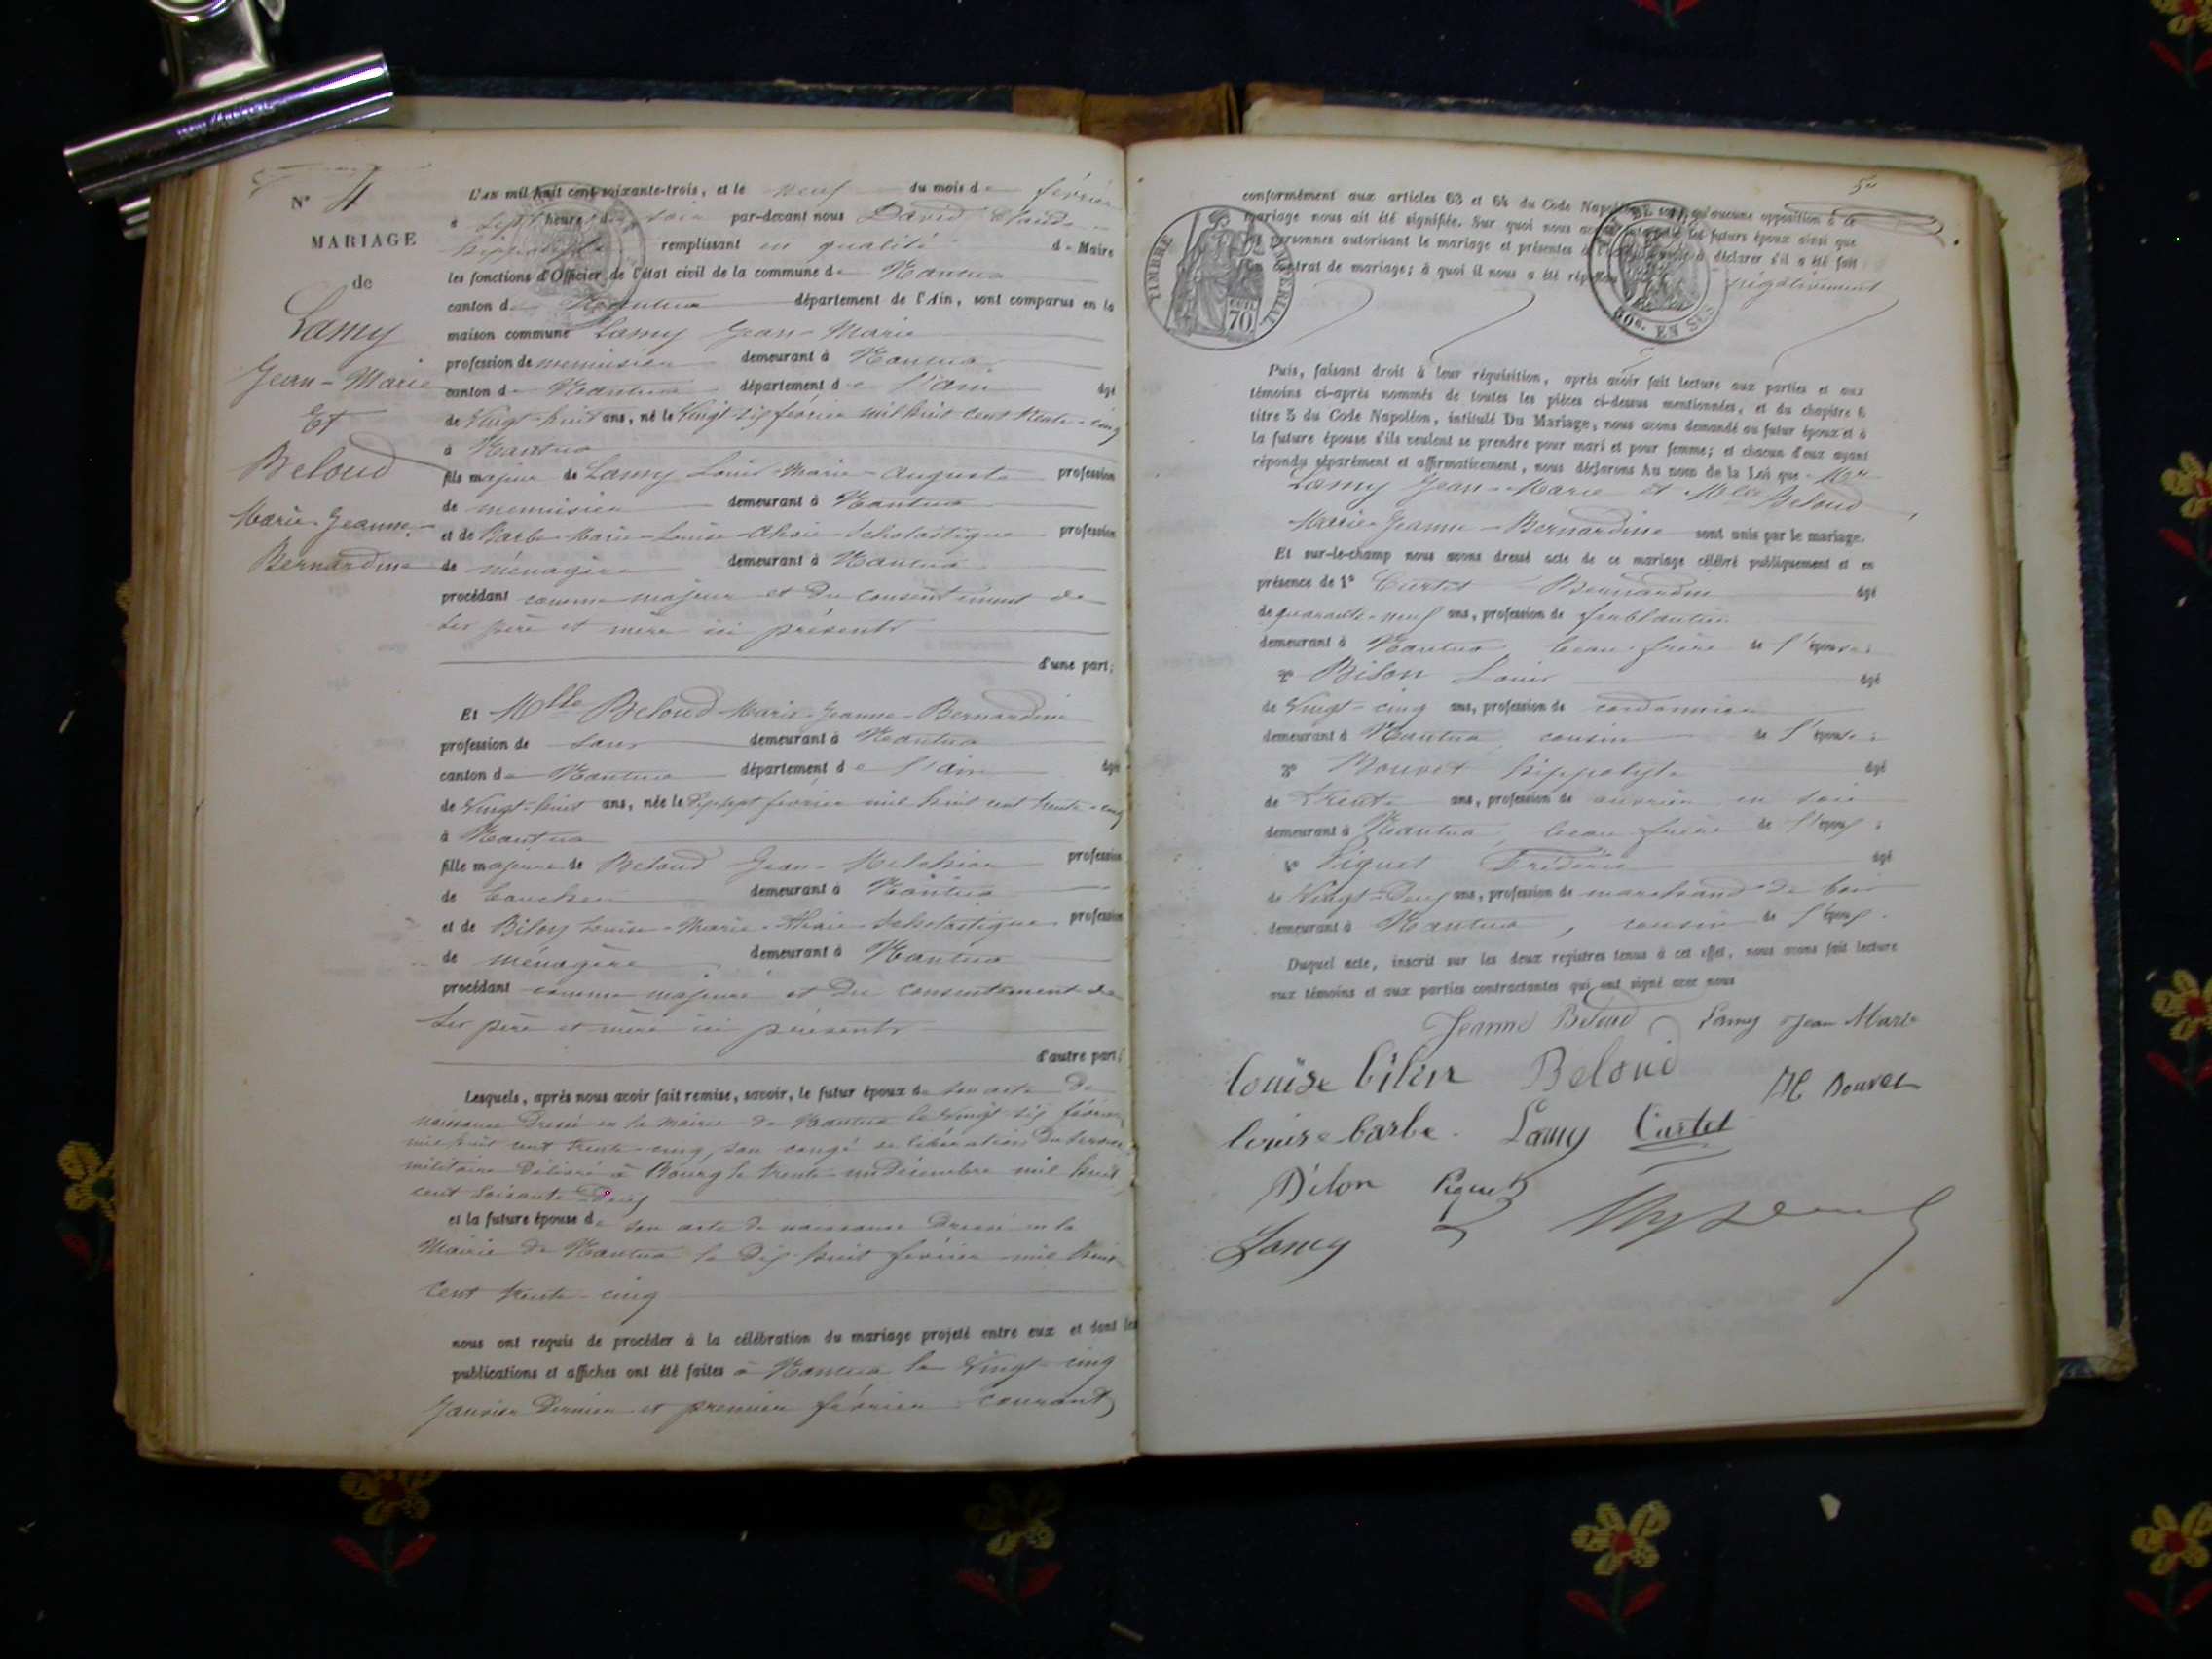 N° 4
MARIAGE
de
Lamy
Jean-Marie
Et
Beloud
Marie-Jeanne-
Bernardine
L'AN mil huit cent soixante-trois, et le neuf du mois de février
à sept heures du soir par-devant nous David Claude
hippolyte remplissant en qualité de Maire
les fonctions d'Officier de l'état civil de la commune de Nantua
canton de Nantua département de l'Ain, sont comparus en la
maison commune Lamy Jean-Marie
profession de menuisier demeurant à Nantua
canton de Nantua département de l'ain âgé
de Vingt-huit ans, né le Vingt-six février mil huit cent trente-cinq
à Nantua
fils majeur de Lamy Louis-Marie-Auguste profession
de menuisier demeurant à Nantua
et de Barbe Marie-Louise- Scholastique profession
de ménagère demeurant à Nantua
procédant comme majeur et du consentement de
ses père et mère ici présents
d'une part;
Et Mlle Beloud Marie-Jeanne-Bernardine
profession de sans demeurant à Nantua
canton de Nantua département de l'ain âgée
de Vingt-huit ans, née le dix sept février mil huit cent trente-cinq
à Nantua
fille majeure de Beloud Jean-Melchior profession
de demeurant à Nantua
et de Bilon Louise-Marie- Scholastique profession
de ménagère demeurant à Nantua
procédant comme majeure et du consentement de
ses père et mère ici présents
d'autre part;
Lesquels, après nous avoir fait remise, savoir, le futur époux de son acte de
naissance dressé en la mairie de Nantua le vingt-six février
mil huit cent trente-cinq, son congé de libération du service
militaire délivré à Bourg le trente-un décembre mil huit
cent soixante-deux
et la future épouse de son acte de naissance dressé en la
Mairie de Nantua le dix-huit février mil huit
cent trente-cinq
nous ont requis de procéder à la célébration du mariage projeté entre eux et dont les
publications et affiches ont été faites à Nantua le Vingt-cinq
Janvier dernier et premier février courant
conformément aux articles 63 et 64 du Code Napoléon sans qu'aucune opposition à ce
mariage nous ait été signifiée. Sur quoi nous avons les futurs époux ainsi que
les personnes autorisant le mariage et présentes à déclarer s'il a été fait
un contrat de mariage; à quoi il nous a été répondu négativement
TIMBRE IMPÉRIAL
70
50c. EN SUS
Puis, faisant droit à leur réquisition, après avoir fait lecture aux parties et aux
témoins ci-après nommés de toutes les pièces ci-dessus mentionnées, et du chapitre 6
titre 5 du Code Napoléon, intitulé Du Mariage, nous avons demandé au futur époux et à
la future épouse s'ils veulent se prendre pour mari et pour femme; et chacun d'eux ayant
répondu séparément et affirmativement, nous déclarons Au nom de la Loi que Mr
Lamy Jean-Marie et Mlle Beloud
Marie-Jeanne-Bernardine sont unis par le mariage.
Et sur-le-champ nous avons dressé acte de ce mariage célébré publiquement et en
présence de 1° Curtet Bernardin âgé
de quarante-neuf ans, profession de ferblantier
demeurant à Nantua beau-frère de l'épouse;
2° Bilon Louis âgé
de Vingt-cinq ans, profession de cordonnier
demeurant à Nantua, cousin de l'épouse;
3° Bouvet hippolyte âgé
de Trente ans, profession de ouvrier en soie
demeurant à Nantua, beau-frère de l'époux;
4° Piquet Frédéric âgé
de Vingt-Deux ans, profession de marchand de bois
demeurant à Nantua, cousin de l'époux.
Duquel acte, inscrit sur les deux registres tenus à cet effet, nous avons fait lecture
aux témoins et aux parties contractantes qui ont signé avec nous
Jeanne Beloud Lamy Jean Marie
louise bilon Beloud H Bouvet
louise barbe. Lamy Curtet
Bilon Piquet
Lamy